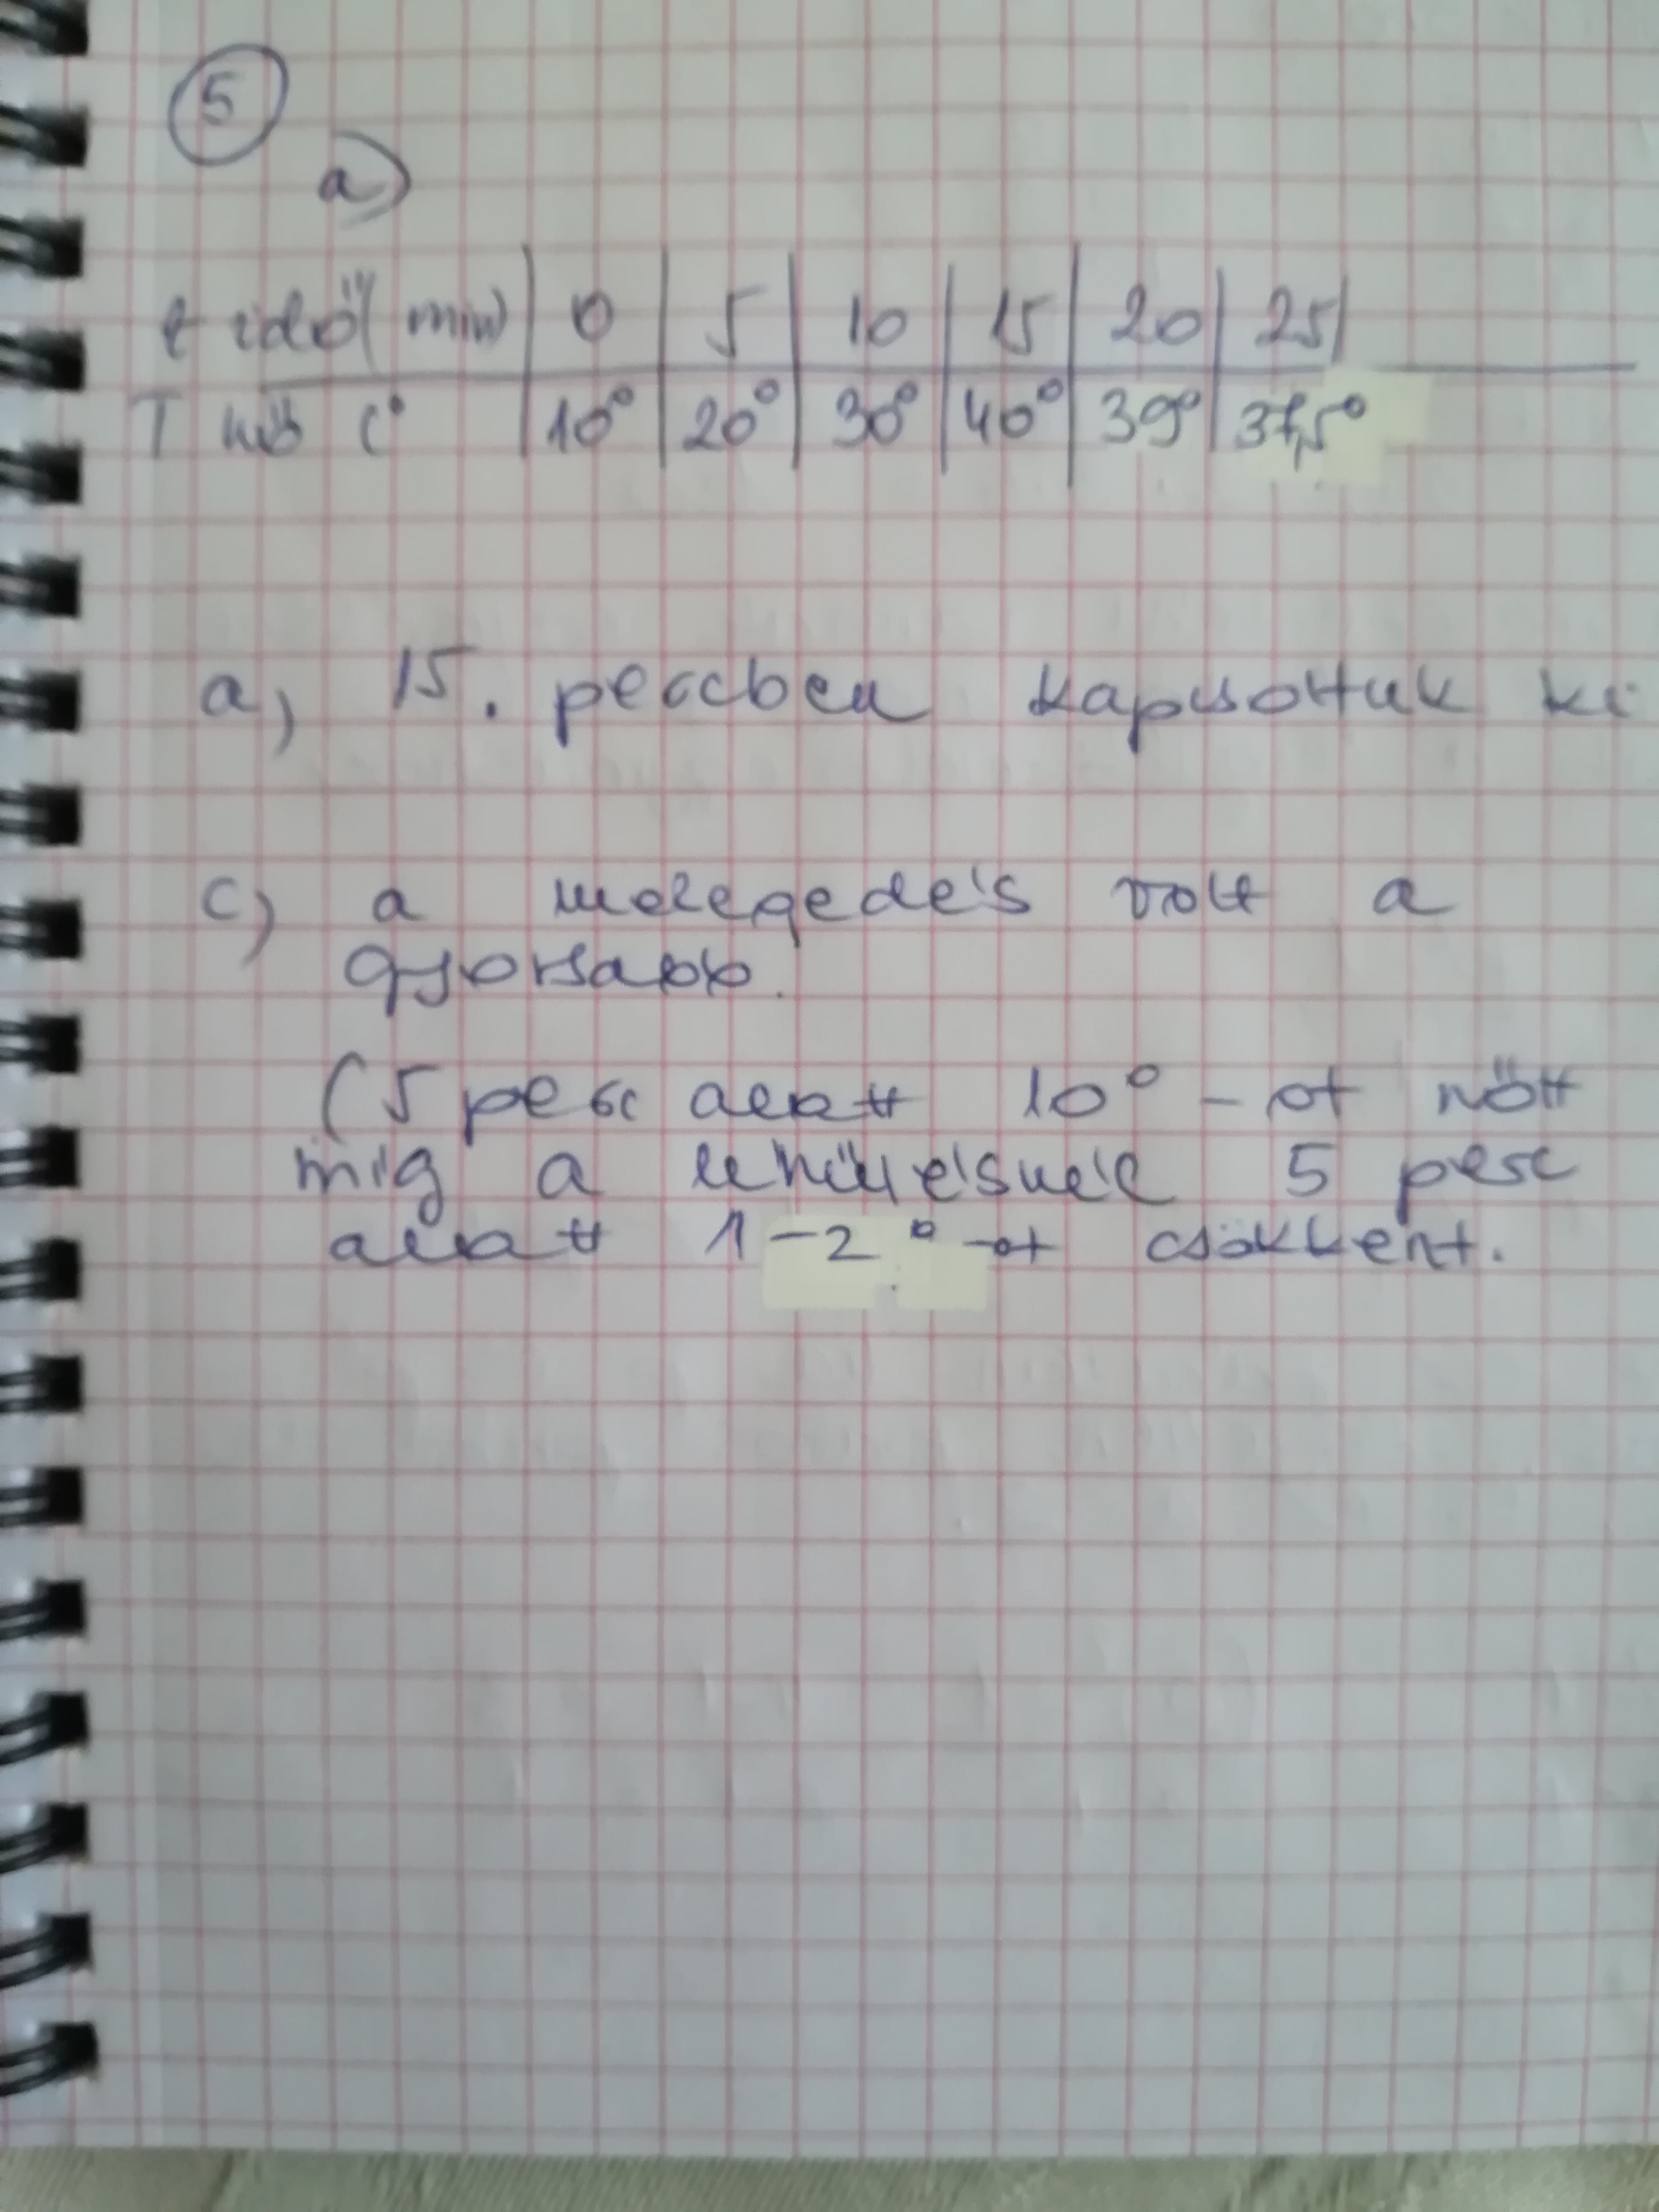 5
a)
t idő (min) 0 5 10 15 20 25
T hőm C° 10° 20° 30° 40° 39° 37,5°
a, 15. percben kapcsoltuk ki
c) a melegedés volt a
gyorsabb.
(5 perc alatt 10°-ot nőtt
míg a lehűlésnél 5 perc
alatt 1-2°-ot csökkent.